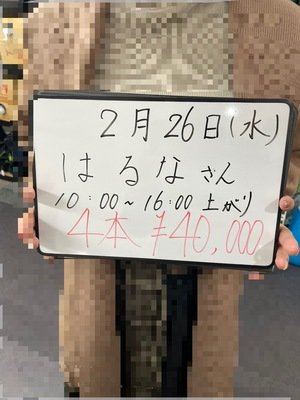 2月26日(水)
はるなさん
10:00~16:00 上がり
4本 ¥40,000